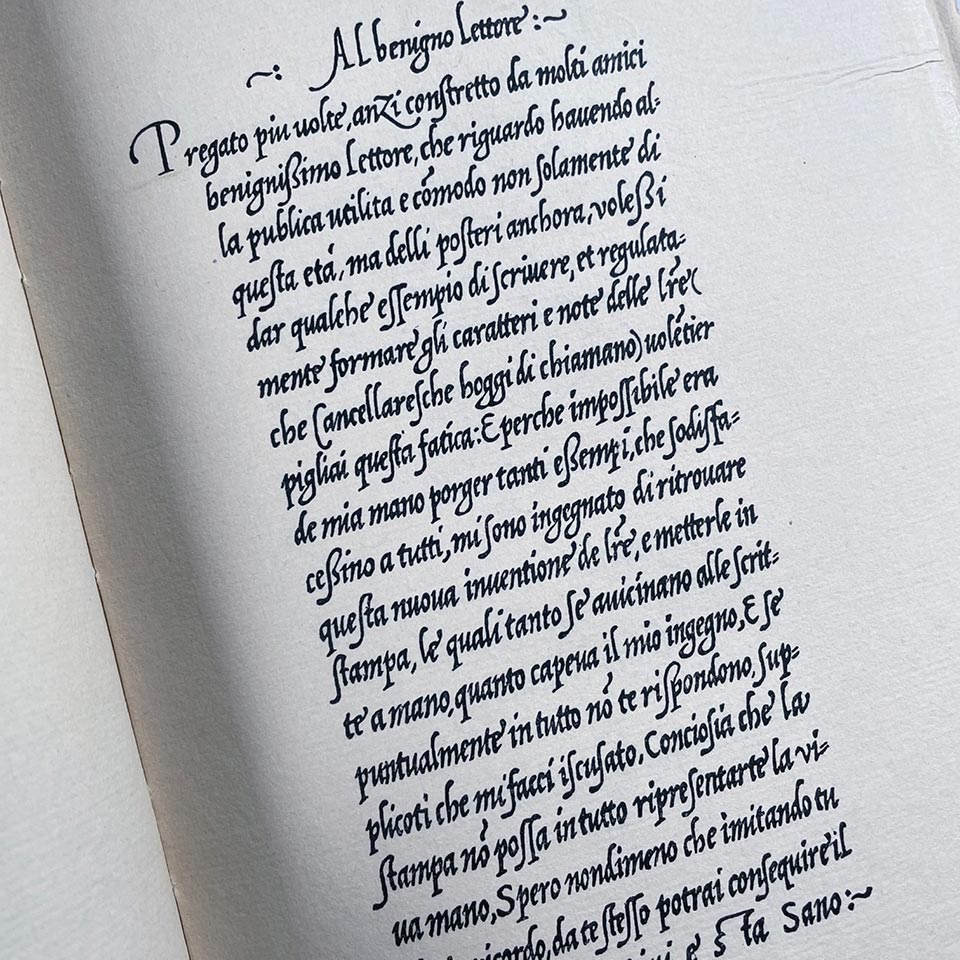 ~: Al benigno lettore :~
Pregato piu uolte, anzi constretto da molti amici
benignißimo Lettore, che riguardo hauendo al-
la publica utilita e cómodo non solamente di
questa etá, ma delli posteri anchora, voleßi
dar qualche essempio di scriuere, et regulata-
mente formare gli caratteri e note delle lr̃e (
che Cancellaresche hoggi di chiamano) uolẽtier
pigliai questa fatica: E perche impossibile era
de mia mano porger tanti eßempi, che sodisfa-
ceßino a tutti, mi sono ingegnato di ritrouare
questa nuoua inuentione de lr̃e, e metterle in
stampa, le quali tanto se auicinano alle scrit-
te a mano, quanto capeua il mio ingegno, E se
puntualmente in tutto nõ te rispondono, sup-
plicoti che mi facci iscusato, Conciosia che la
stampa nõ possa in tutto ripresentarte la vi-
ua mano, Spero nondimeno che imitando tu
ricordo, da te stesso potrai consequire il
e ta Sano :~